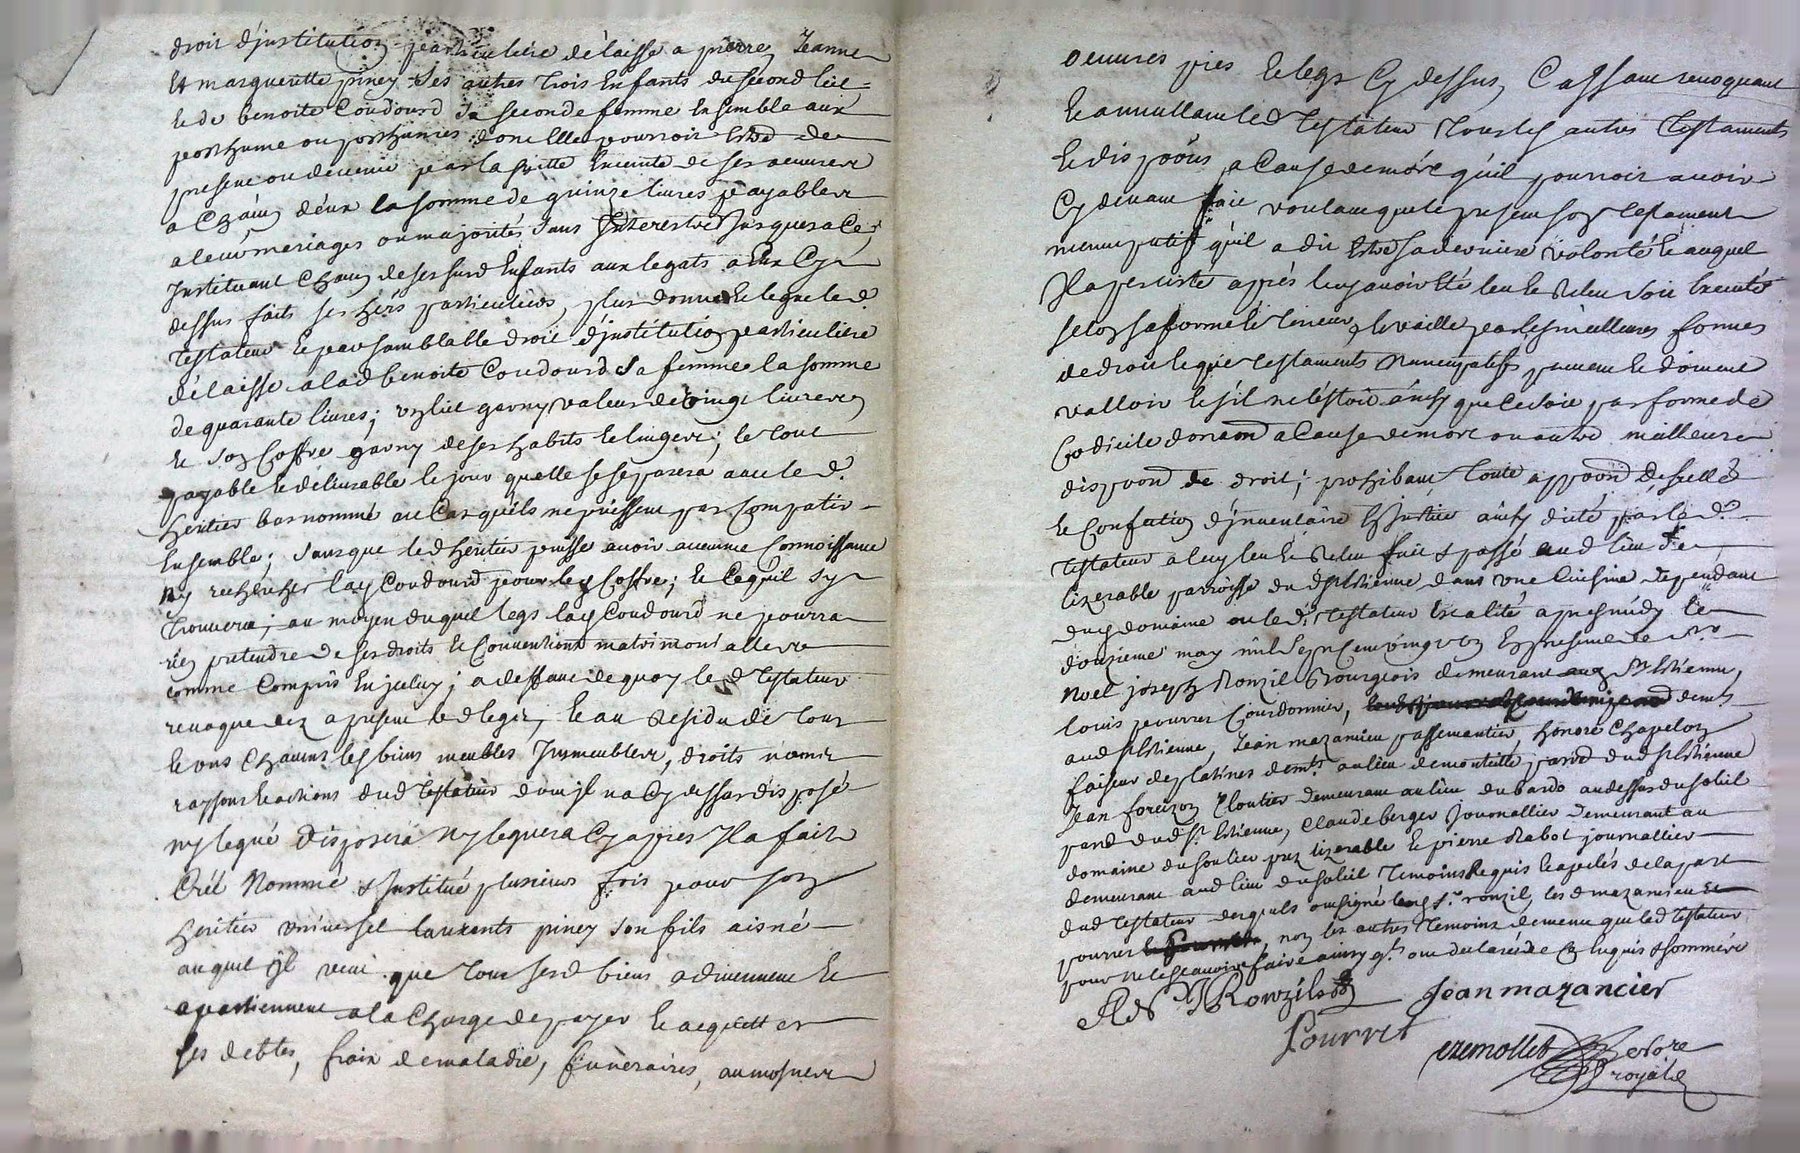 droit d'jnstitution particuliere délaisse a pierre, Jeanne
Et margueritte piney ses autres trois Enfants du second lict
Et de benoite Coudourd sa seconde femme Ensemble aux
posthume ou posthumes donc Elle pourroit Estre de
present ou devenir par la suitte Enceinte de ses oeuvres
a Chacun d'eux la somme de quinze livres payable
a leurs mariages ou majorités sans Interests Jusques a Ce,
Jnstituant Chacun de sesd Enfants aux legats a Eux Cy
dessus faits ses hers particuliers, plus donne Et legue led
Testateur Et par samblable droit d'jnstitution particuliere
délaisse a lad benoite Coudourd sa femme la somme
de quarante livres; un lict garny valeur de vingt livres
Et son Coffre garny de ses habits Et linges; le tout
payable Et délivrable le jour quelle se separera avec led
heritier bas nommé au Cas quils ne puissent pas Compatir
Ensemble; sans que led heritier puisse avoir aucune Connoissance
ny rechercher lad Coudourd pour led Coffre; Et Cequil sy
trouvera; au moyen duquel legs lad Coudourd ne pourra
rien pretendre de ses droits Et Conventions matrimonialles
comme Compris En jceluy; a deffaut de quoy led Testateur
revoque dez apresent led legs, Et au Residu de tous
Et uns Chacuns ses biens meubles Jmmeubles, droits noms
raysons Et actions dud Testateur dont jl na Cy dessus disposé
ny legué disposera ny leguera Cy apres Jl a fait
Créé Nommé & Jnstitué plusieurs fois pour son
heritier universel laurents piney son fils aisné
auquel jl veut que tous sesd biens adviennent Et
apartiennent a la Charge de payer Et acquitter
ses debtes, fraix de maladie, funeraires, aumosnes
oeuvres pies Et legs Cy dessus, Cassant revoquant
Et annullant led Testateur tous les autres Testaments
Et dispoons a Cause de mort qu'il pourroit avoir
Cy devant fait voulant que le present son testament
nuncupatif qu'il a dit Estre sa derniere volonté Et auquel
Jl a persisté après luy avoir Eté leu Et Releu soit Executé
selon sa forme Et teneur, Et vaille par les meilleures formes
de droit Et que testaments Nuncupatifs peuvent Et doivent
valloir Et s'il n'étoit ainsy que Ce soit par forme de
Codicile donaon a Cause de mort ou autre meilleure
dispoon de droit; prohibant toute appoon de scellé
Et Confection d'jnventaire En Justice ainsy dicté par led
testateur a luy leu Et Releu fait & passé aud lieu de
lizerable parroisse dud St Estienne dans une Cuisine dependant
dud domaine ou led testateur Est alité apres midy le
douzieme may mil sept Cent vingt un En presence de sr
Noel joseph Ronzil Bourgeois demeurant aud St Estienne,
louis pourret Courdonnier, demt
aud St Estienne, Jean mazancieu passemantier, honoré Chapelon
faiseur de platines demt au lieu de montcille paroisse dud St Estienne
Jean forcizon Cloutier demeurant au lieu du bardo au dessus du soleil
parr dud St Estienne, Claude berger Journallier demeurant au
domaine du soulier prez lizerable Et pierre Rabot journallier
demeurant aud lieu du soleil temoins Requis Et apelés de la part
dud testateur desquels ont signé led sr ronzil, les d mazancieu Et
pourret, non les autres temoins de mesme que led testateur
pour ne le scavoir faire ainsy qls ont declaré de Ce Enquis & sommés
Ronzil
Jean mazancier
Pourret
ezemollet
Nore
royal